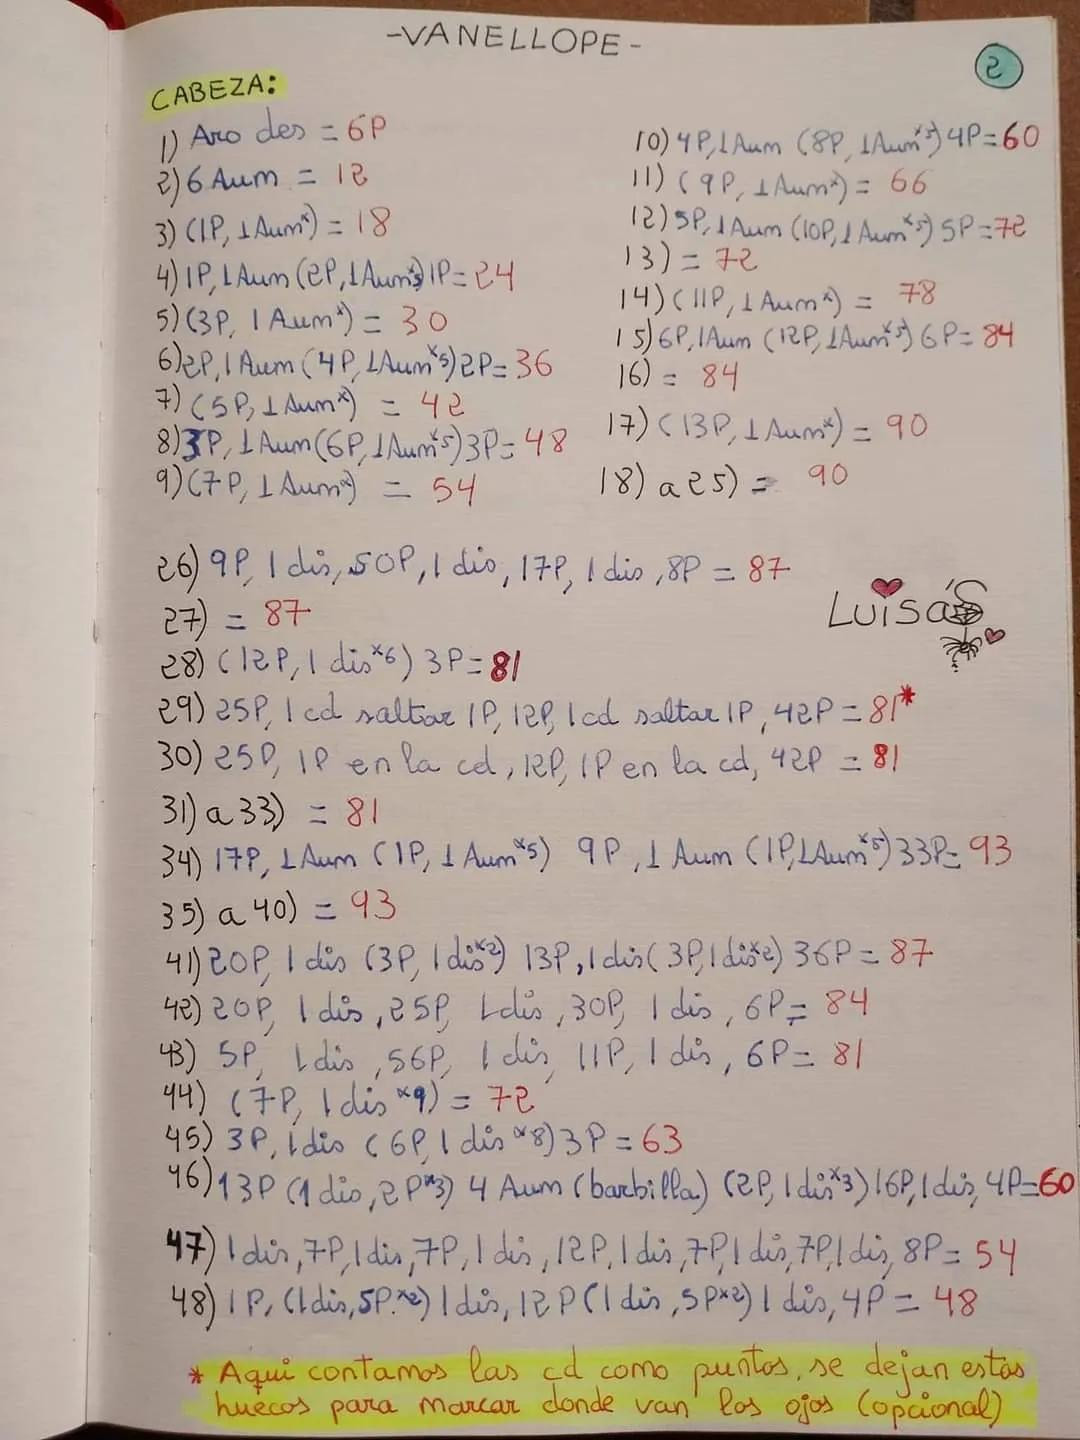 -VANELLOPE-
2
CABEZA:
1) Aro des = 6P
2) 6 Aum = 12
3) (1P, 1 Aum*) = 18
4) 1P, 1 Aum (2P, 1 Aum*5) 1P = 24
5) (3P, 1 Aum*) = 30
6) 2P, 1 Aum (4P, 1 Aum*5) 2P = 36
7) (5P, 1 Aum*) = 42
8) 3P, 1 Aum (6P, 1 Aum*5) 3P = 48
9) (7P, 1 Aum*) = 54
10) 4P, 1 Aum (8P, 1 Aum*5) 4P = 60
11) (9P, 1 Aum*) = 66
12) 5P, 1 Aum (10P, 1 Aum*5) 5P = 72
13) = 72
14) (11P, 1 Aum*) = 78
15) 6P, 1 Aum (12P, 1 Aum*5) 6P = 84
16) = 84
17) (13P, 1 Aum*) = 90
18) a 25) = 90
26) 9P, 1 dis, 50P, 1 dis, 17P, 1 dis, 8P = 87
27) = 87
LUISA'S
28) (12P, 1 dis*6) 3P = 81
29) 25P, 1 cd saltar 1P, 12P, 1 cd saltar 1P, 42P = 81*
30) 25P, 1P en la cd, 12P, 1P en la cd, 42P = 81
31) a 33) = 81
34) 17P, 1 Aum (1P, 1 Aum*5) 9P, 1 Aum (1P, 1 Aum*5) 33P = 93
35) a 40) = 93
41) 20P, 1 dis (3P, 1 dis*2) 13P, 1 dis (3P, 1 dis*2) 36P = 87
42) 20P, 1 dis, 25P, 1 dis, 30P, 1 dis, 6P = 84
43) 5P, 1 dis, 56P, 1 dis, 11P, 1 dis, 6P = 81
44) (7P, 1 dis*9) = 72
45) 3P, 1 dis (6P, 1 dis*8) 3P = 63
46) 13P (1 dis, 2P*3) 4 Aum (barbilla) (2P, 1 dis*3) 16P, 1 dis, 4P = 60
47) 1 dis, 7P, 1 dis, 7P, 1 dis, 12P, 1 dis, 7P, 1 dis, 7P, 1 dis, 8P = 54
48) 1P, (1 dis, 5P*2) 1 dis, 12P (1 dis, 5P*2) 1 dis, 4P = 48
* Aqui contamos las cd como puntos, se dejan estos
huecos para marcar donde van los ojos (opcional)